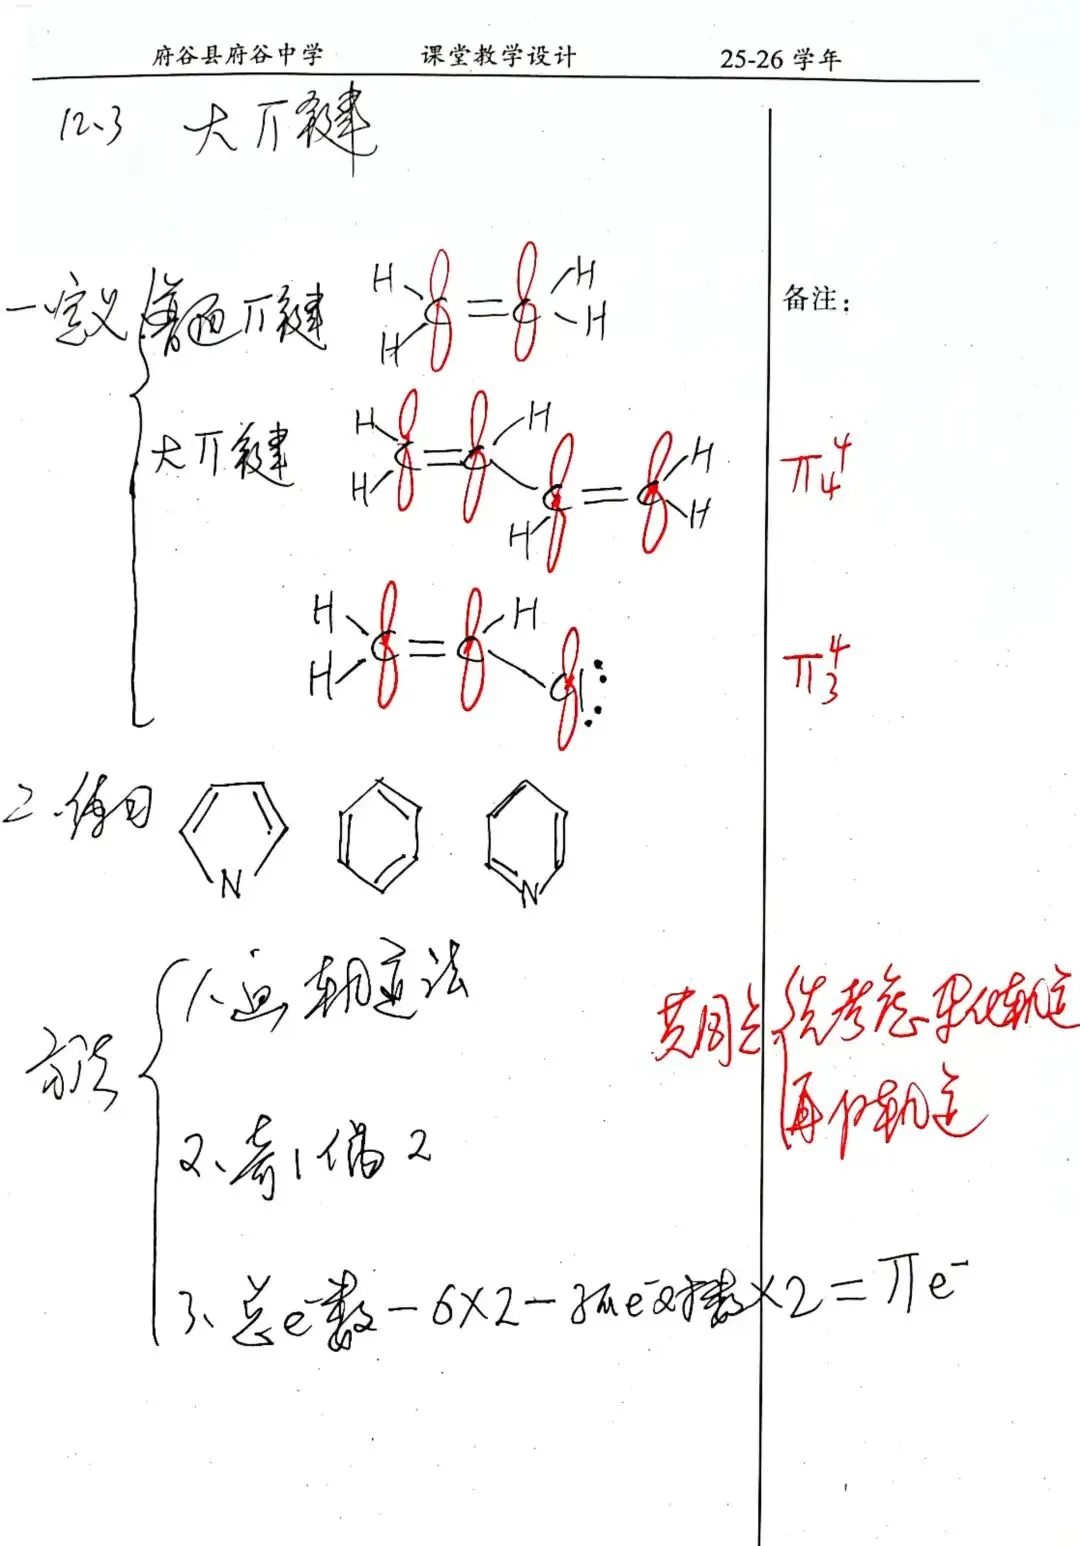 府谷县府谷中学 课堂教学设计 25-26 学年
12.3 大π键
备注：
一 定义 普通π键 H H C = C H H
大π键 H H C = C H C H = C H H π₄⁴
H H C = C H Cl π₃⁴
二、练习 N N
方法
1、画轨道法
共同点 先考虑杂化轨道
再 P轨道
2、奇1偶2
3、总e⁻数 - 6×2 - 孤e⁻对数×2 = πe⁻